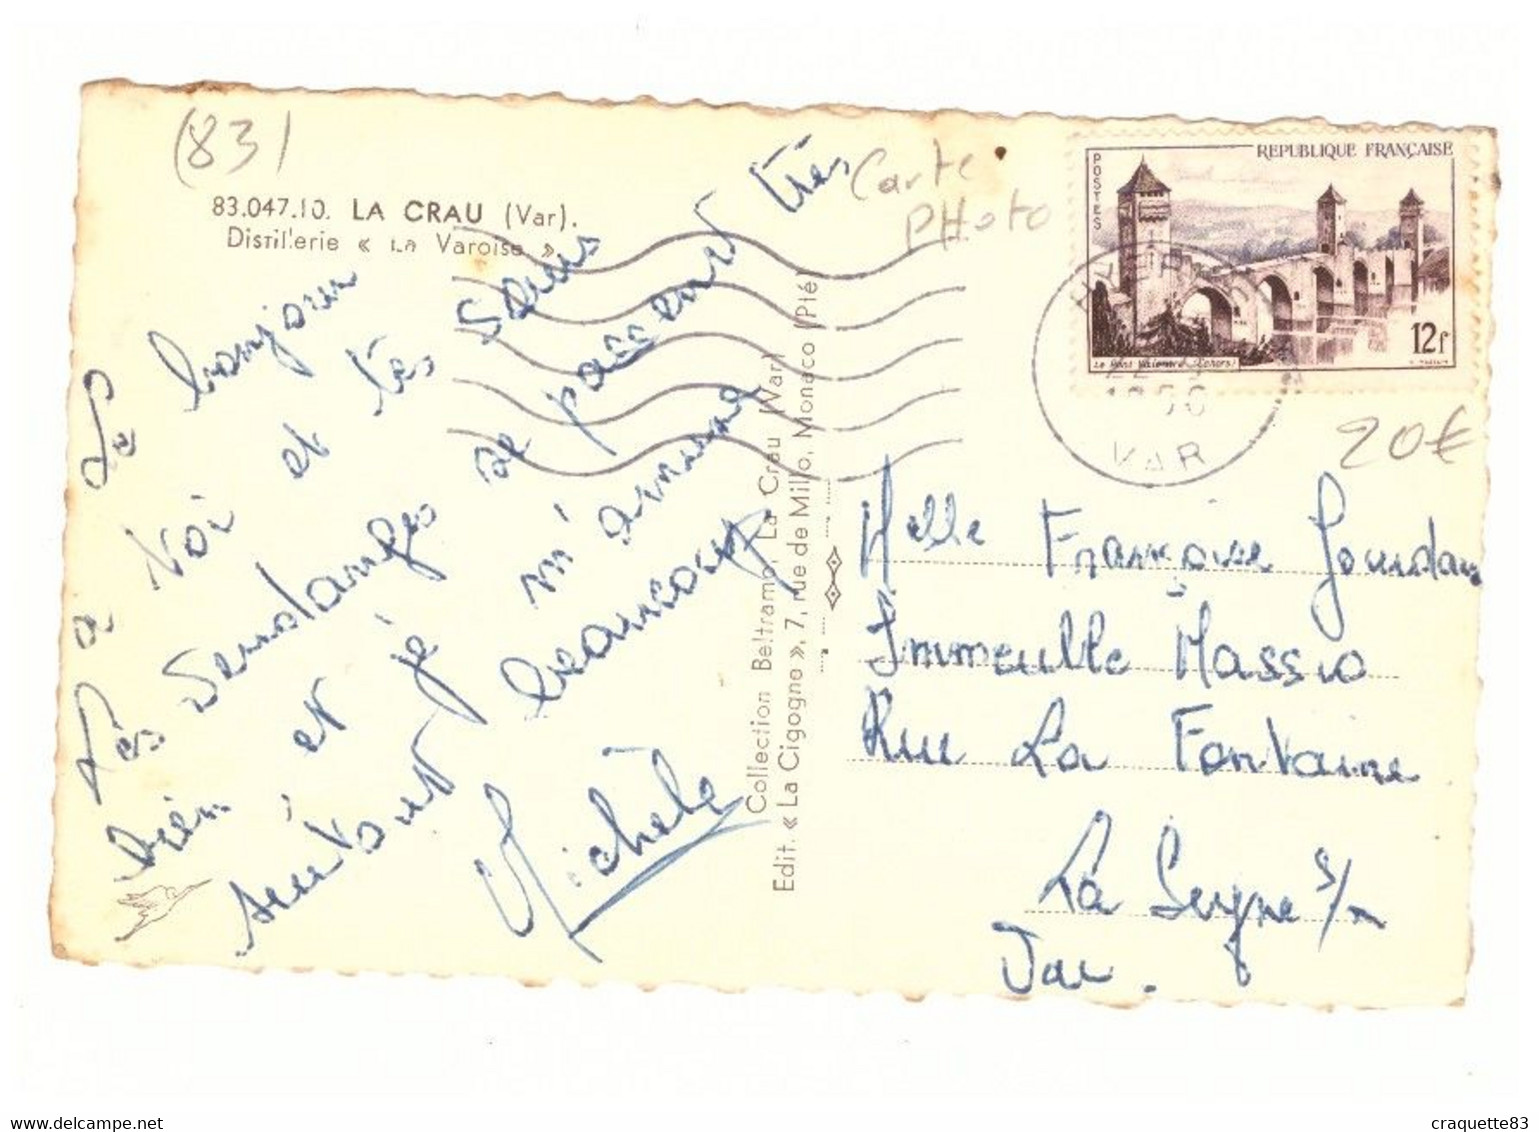 (83)
83.047.10. LA CRAU (Var).
Distillerie « La Varoise ».
Carte
PHoto
REPUBLIQUE FRANÇAISE
POSTES
12f
Le Pont Valentré (Cahors)
VAR
20€
Le bonjour
a Toi et tes Sœurs
Les Vendanges se passent très
bien et je m'amuse
surtout beaucoup
Michèle
Collection Beltramo, La Crau (Var)
Edit. « La Cigogne », 7, rue de Millo, Monaco (Pté)
Melle Françoise Jourdan
Immeuble Massio
Rue La Fontaine
La Seyne s/m
Var.
delcampe.net
craquette83